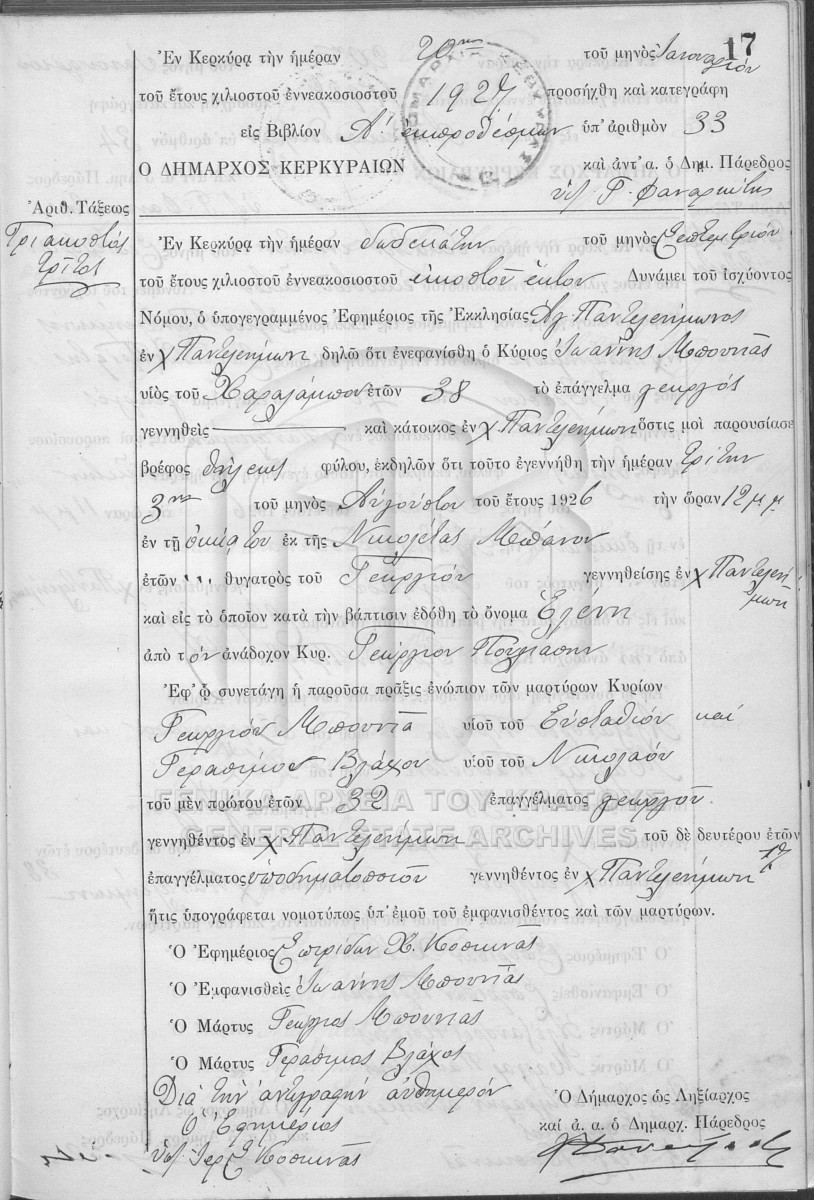 17
Ἐν Κερκύρᾳ τὴν ἡμέραν 20ην τοῦ μηνὸς Ἰανουαρίου
τοῦ ἔτους χιλιοστοῦ ἐννεακοσιοστοῦ 1927 προσήχθη καὶ κατεγράφη
εἰς Βιβλίον Α΄. ἐκπροθέσμων ὑπ' ἀριθμὸν 33
Ο ΔΗΜΑΡΧΟΣ ΚΕΡΚΥΡΑΙΩΝ καὶ ἀντ' α. ὁ Δημ. Πάρεδρος
Ἀριθ. Τάξεως
Τριακοστὸς
τρίτος
Ἐν Κερκύρᾳ τὴν ἡμέραν δωδεκάτην τοῦ μηνὸς Σεπτεμβρίου
τοῦ ἔτους χιλιοστοῦ ἐννεακοσιοστοῦ εἰκοστοῦ ἕκτου Δυνάμει τοῦ ἰσχύοντος
Νόμου, ὁ ὑπογεγραμμένος Ἐφημέριος τῆς Ἐκκλησίας Ἁγ Παντελεήμονος
ἐν χ Παντελεήμονι δηλῶ ὅτι ἐνεφανίσθη ὁ Κύριος Ἰωάννης Μπουνιᾶς
υἱὸς τοῦ Χαραλάμπου ἐτῶν 38 τὸ ἐπάγγελμα γεωργός
γεννηθεὶς καὶ κάτοικος ἐν χ Παντελεήμονι ὅστις μοὶ παρουσίασε
βρέφος θήλεως φύλου, ἐκδηλῶν ὅτι τοῦτο ἐγεννήθη τὴν ἡμέραν τρίτην
3ην τοῦ μηνὸς Αὐγούστου τοῦ ἔτους 1926 τὴν ὥραν 12 μ μ
ἐν τῇ οἰκίᾳ του ἐκ τῆς Νικολέτας Μπάνου
ἐτῶν θυγατρὸς τοῦ Γεωργίου γεννηθείσης ἐν χ Παντελεήμονι
καὶ εἰς τὸ ὁποῖον κατὰ τὴν βάπτισιν ἐδόθη τὸ ὄνομα Ἑλένη
ἀπὸ τὸν ἀνάδοχον Κυρ. Γεώργιον
Ἐφ' ᾧ συνετάγη ἡ παροῦσα πρᾶξις ἐνώπιον τῶν μαρτύρων Κυρίων
Γεωργίου Μπουνιᾶ υἱοῦ τοῦ Εὐσταθίου καὶ
Γερασίμου Βλάχου υἱοῦ τοῦ Νικολάου
τοῦ μὲν πρώτου ἐτῶν 32 ἐπαγγέλματος γεωργοῦ
ΓΕΝΙΚΑ ΑΡΧΕΙΑ ΤΟΥ ΚΡΑΤΟΥΣ
GENERAL STATE ARCHIVES
γεννηθέντος ἐν χ Παντελεήμονι τοῦ δὲ δευτέρου ἐτῶν
ἐπαγγέλματος ὑποδηματοποιοῦ γεννηθέντος ἐν χ Παντελεήμονι
ἥτις ὑπογράφεται νομοτύπως ὑπ' ἐμοῦ τοῦ ἐμφανισθέντος καὶ τῶν μαρτύρων.
Ὁ Ἐφημέριος Σπυρίδων Χ. Κοσκινᾶς
Ὁ Ἐμφανισθεὶς Ἰωάννης Μπουνιᾶς
Ὁ Μάρτυς Γεώργιος Μπουνιας
Ὁ Μάρτυς Γεράσιμος Βλάχος
Διὰ τὴν ἀντιγραφὴν αὐθημερόν
Ὁ Ἐφημέριος
Κοσκινᾶς
Ὁ Δήμαρχος ὡς Ληξίαρχος
καὶ ἀ. α. ὁ Δημαρχ. Πάρεδρος